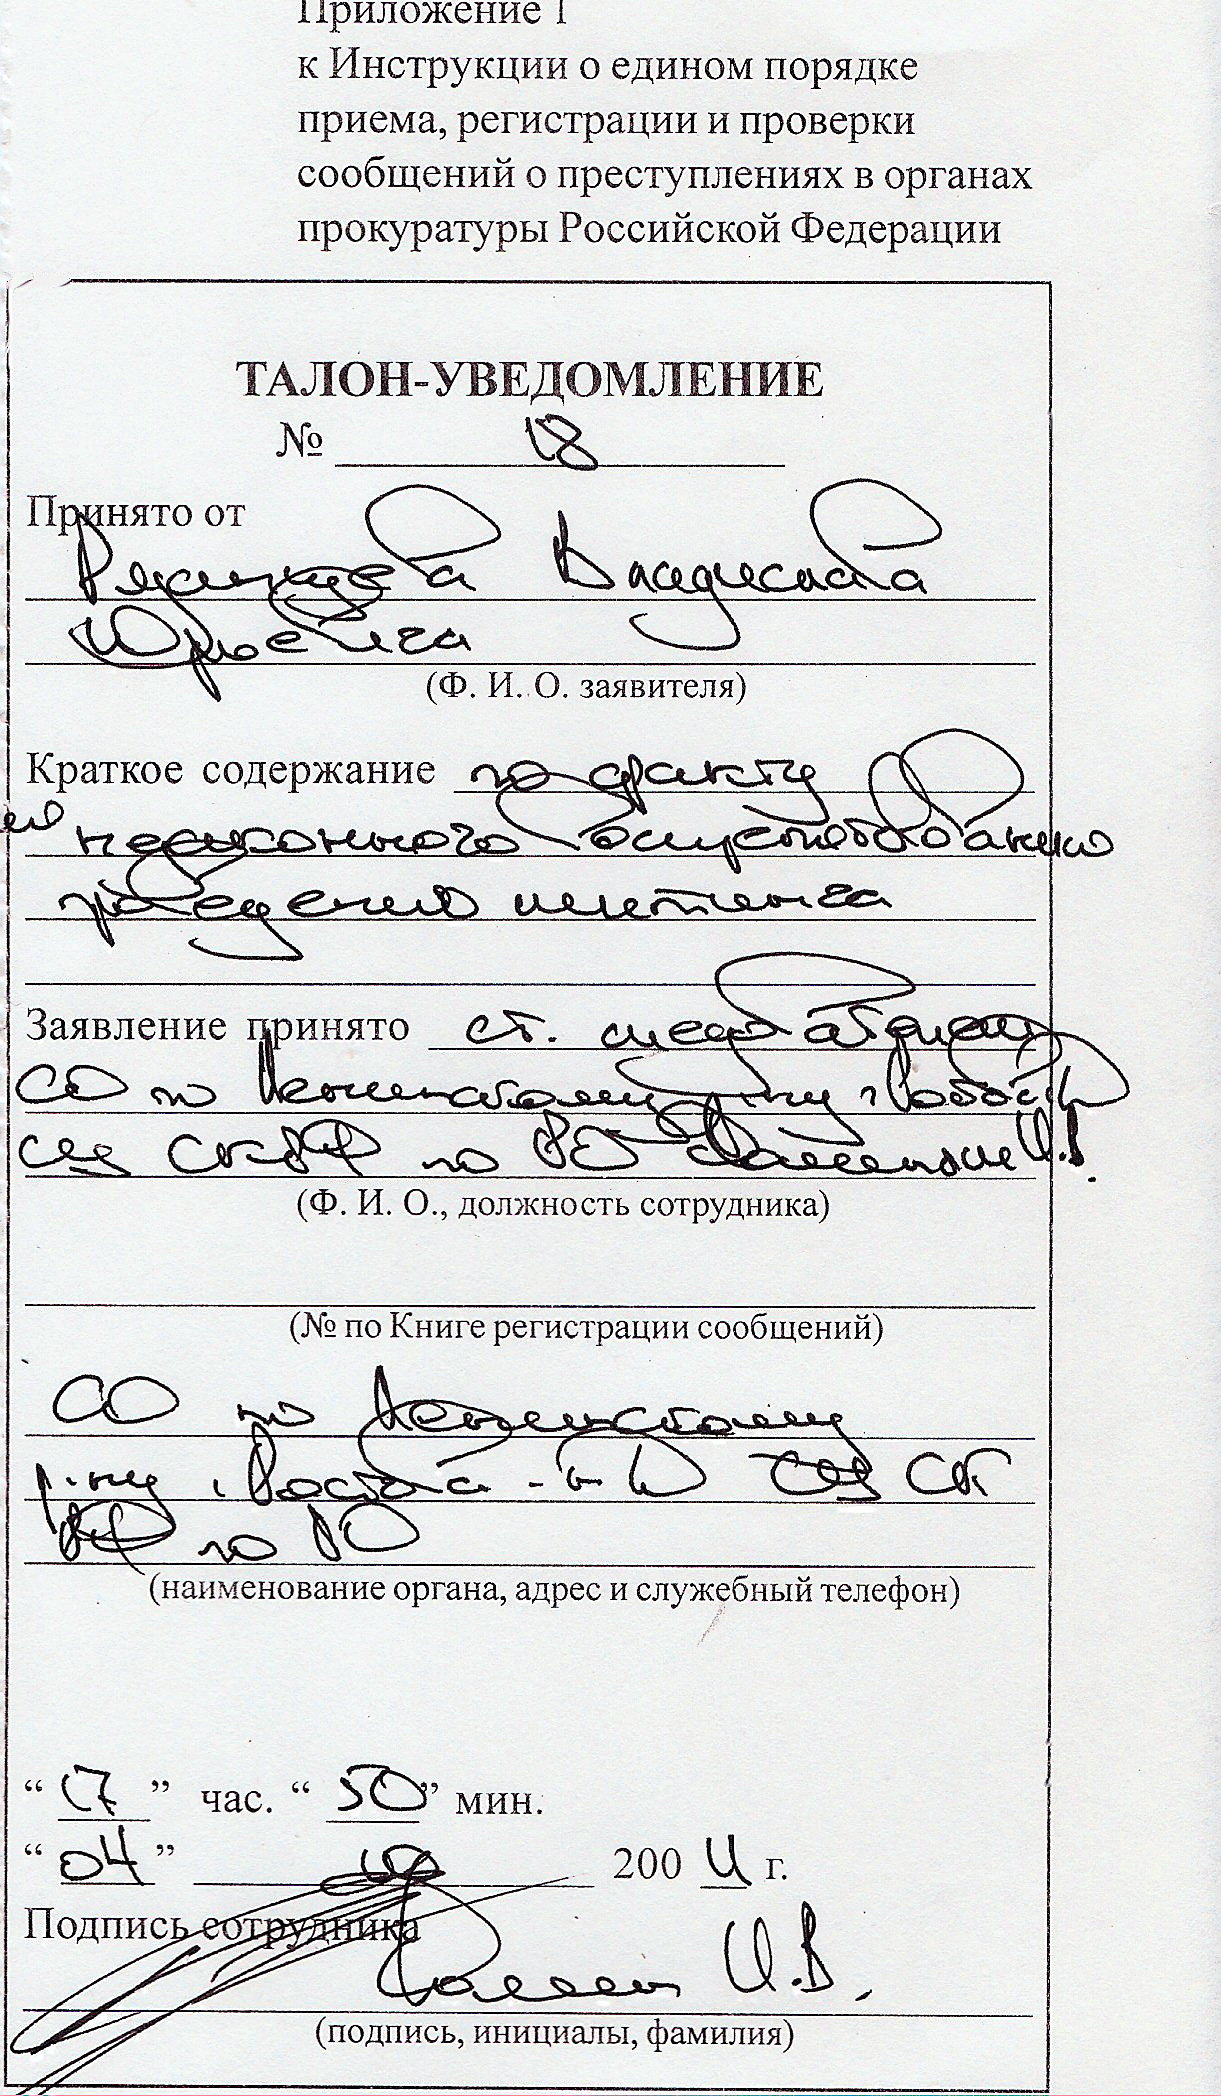 Приложение 1
к Инструкции о едином порядке
приема, регистрации и проверки
сообщений о преступлениях в органах
прокуратуры Российской Федерации
ТАЛОН-УВЕДОМЛЕНИЕ
№ 18
Принято от
Владислава
Юрьевича
(Ф. И. О. заявителя)
Краткое содержание по факту
незаконного
проведению митинга
Заявление принято ст. следователем
СО по Ленинскому р-ну г. Ростов
СУ СК РФ по РО И.В.
(Ф. И. О., должность сотрудника)
(№ по Книге регистрации сообщений)
СО по Ленинскому
р-ну г. Ростов-н-Д СУ СК
РФ по РО
(наименование органа, адрес и служебный телефон)
“ 17 ” час. “ 50 ” мин.
“ 04 ” 200 г.
Подпись сотрудника
И.В.
(подпись, инициалы, фамилия)